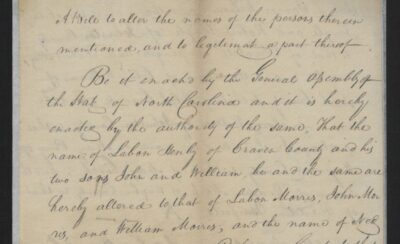 A Bill to alter the names of the persons therein
mentioned, and to legitimat a part thereof.
Be it enacted by the General Assembly of
the Stat of North Carolina and it is hereby
enacted by the authority of the same, That the
name of Labon of Craven County and his
two sons John and William, be and the same are
hereby altered to that of Labon Morris, John Mor
ris, and William Morris, and the name of